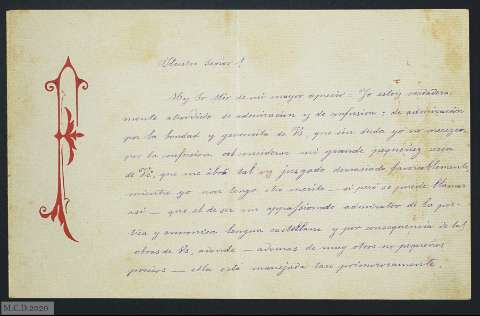 Ilustre Señor!
Muy Sr Mio de mi mayor aprecio — Yo estoy verdadera-
mente aturdido de admiracion y de confusion; de admiracion
por la bondad y generosita de Vs, que sin duda yo no merezco,
por la confusion al considerar mi grande pequeñez cerca
de Vs, que me abrá tal vez juzgado demasiado favorablemente,
mientra yo non tengo otro merito — si pero se puede llamar
asi — que el de ser un appassionado admirador de la poe-
tica y armoniosa lengua castellana y por consequencia de las
obras de Vs, siendo — ademas de muy otros no pequeños
precios — ella esta manejada tan primorosamente.
M.C.D.2020